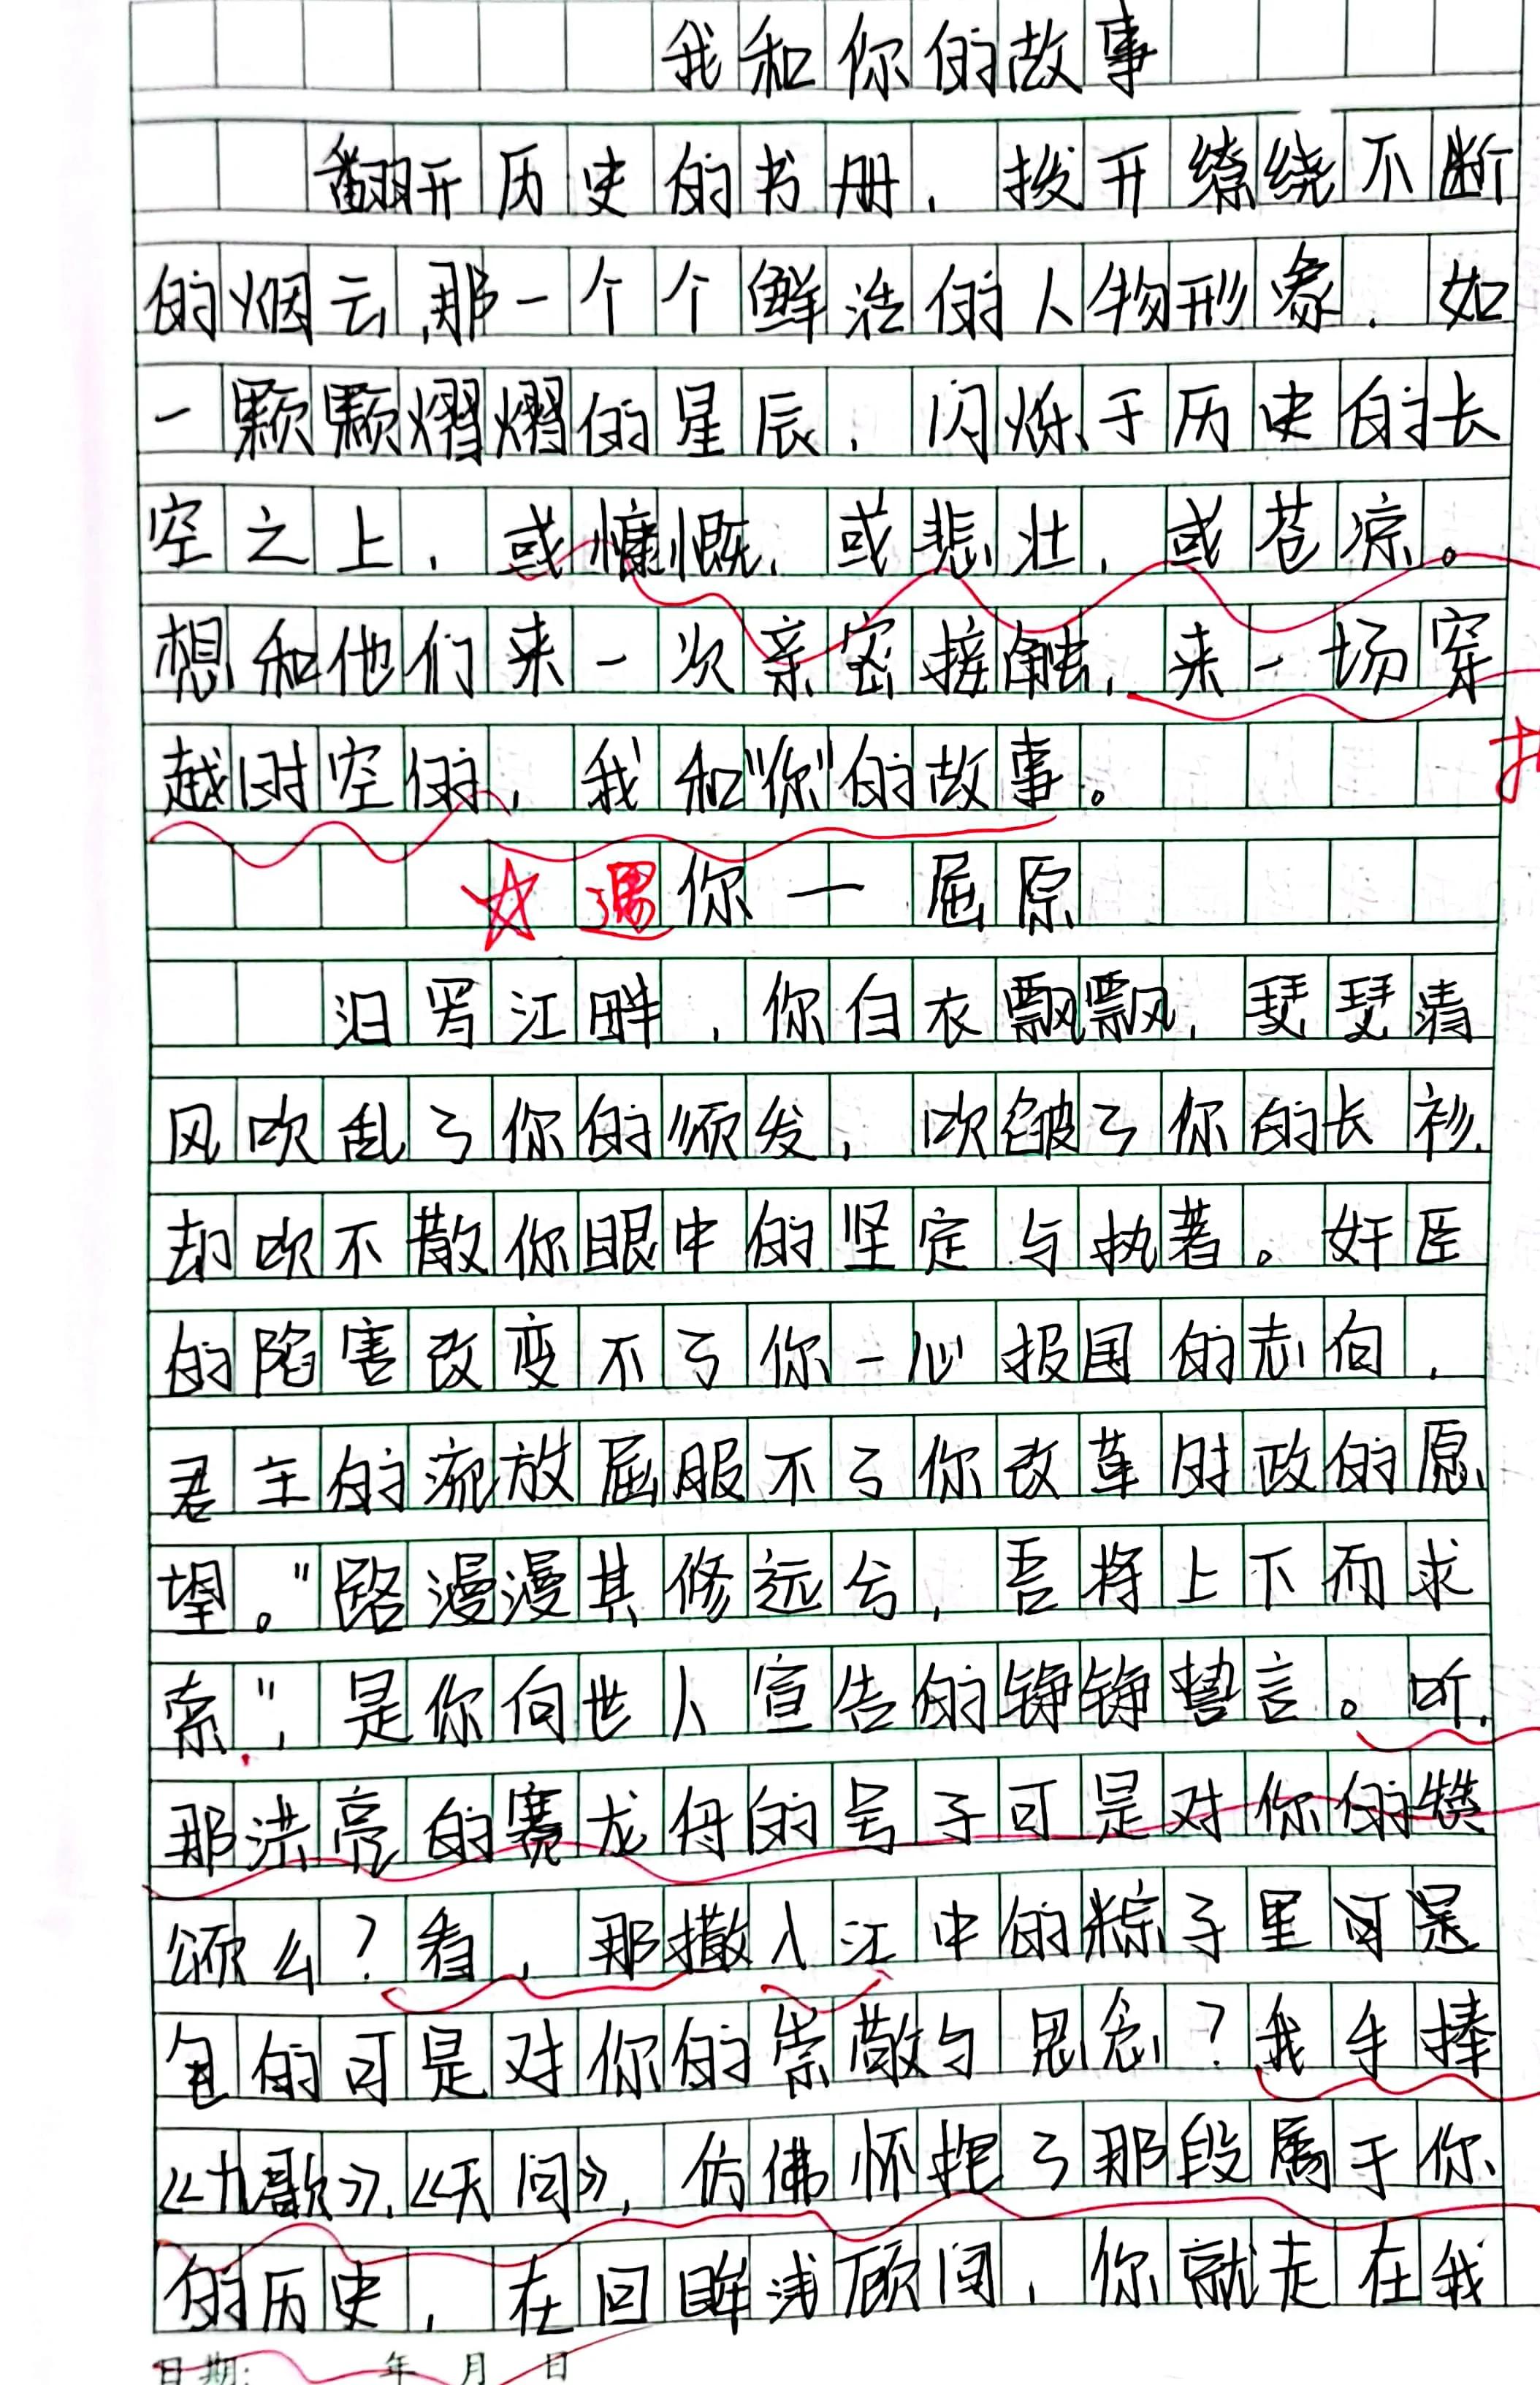 我和你的故事
翻开历史的书册，拨开缭绕不断
的烟云，那一个个鲜活的人物形象，如
一颗颗熠熠的星辰，闪烁于历史的长
空之上，或慷慨，或悲壮，或苍凉。
想和他们来一次亲密接触，来一场穿
越时空的，我和“你”的故事。
☆遇你一屈原
汨罗江畔，你白衣飘飘，瑟瑟清
风吹乱了你的须发，吹皱了你的长衫，
却吹不散你眼中的坚定与执著。奸臣
的陷害改变不了你一心报国的志向，
君主的流放屈服不了你改革时政的愿
望。“路漫漫其修远兮，吾将上下而求
索”，是你向世人宣告的铮铮誓言。听，
那洪亮的赛龙舟的号子可是对你的赞
颂么？看，那撒入江中的粽子里可是
包的可是对你的崇敬与思念？我手捧
《九歌》、《天问》，仿佛怀抱了那段属于你
的历史，在回眸浅顾间，你就走在我
日期： 年 月 日